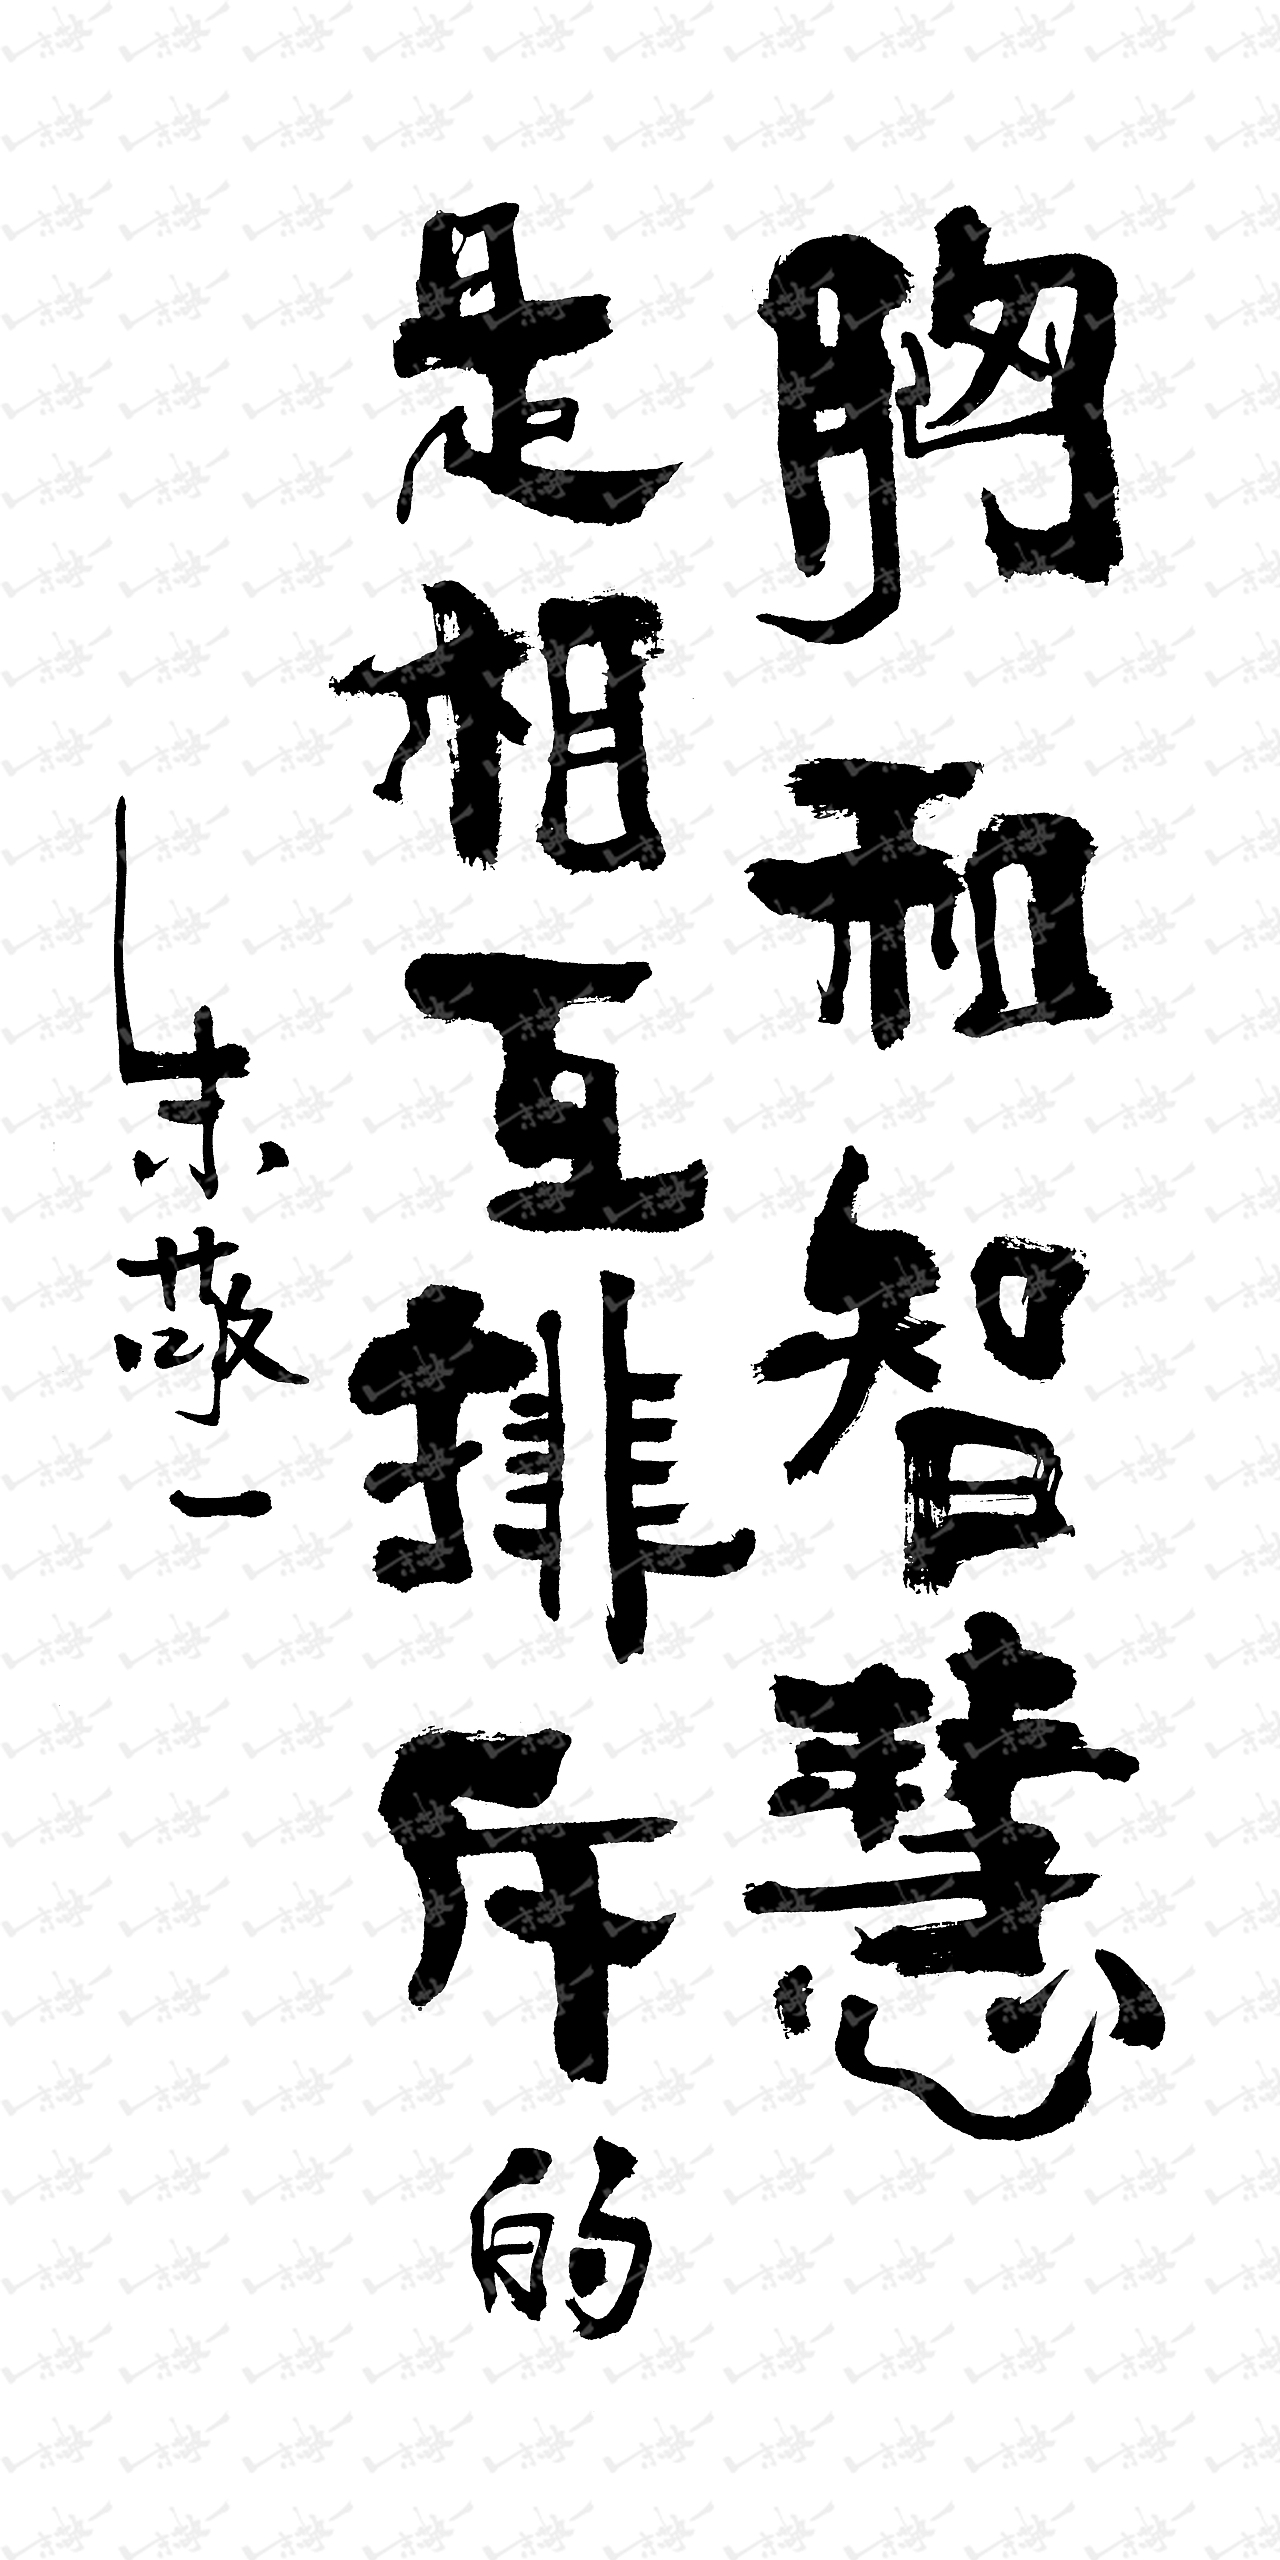 胸和智慧
是相互排斥的
朱敬一